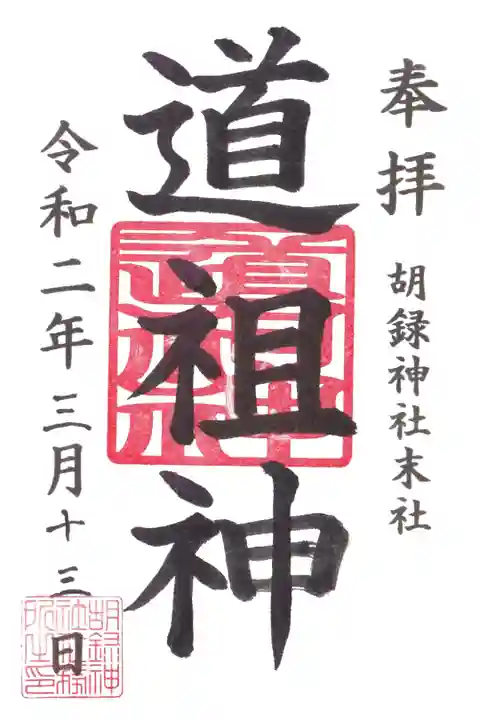 奉拝
胡録神社末社
道祖神
令和二年三月十三日
道祖神
胡録神
社社務
所之印